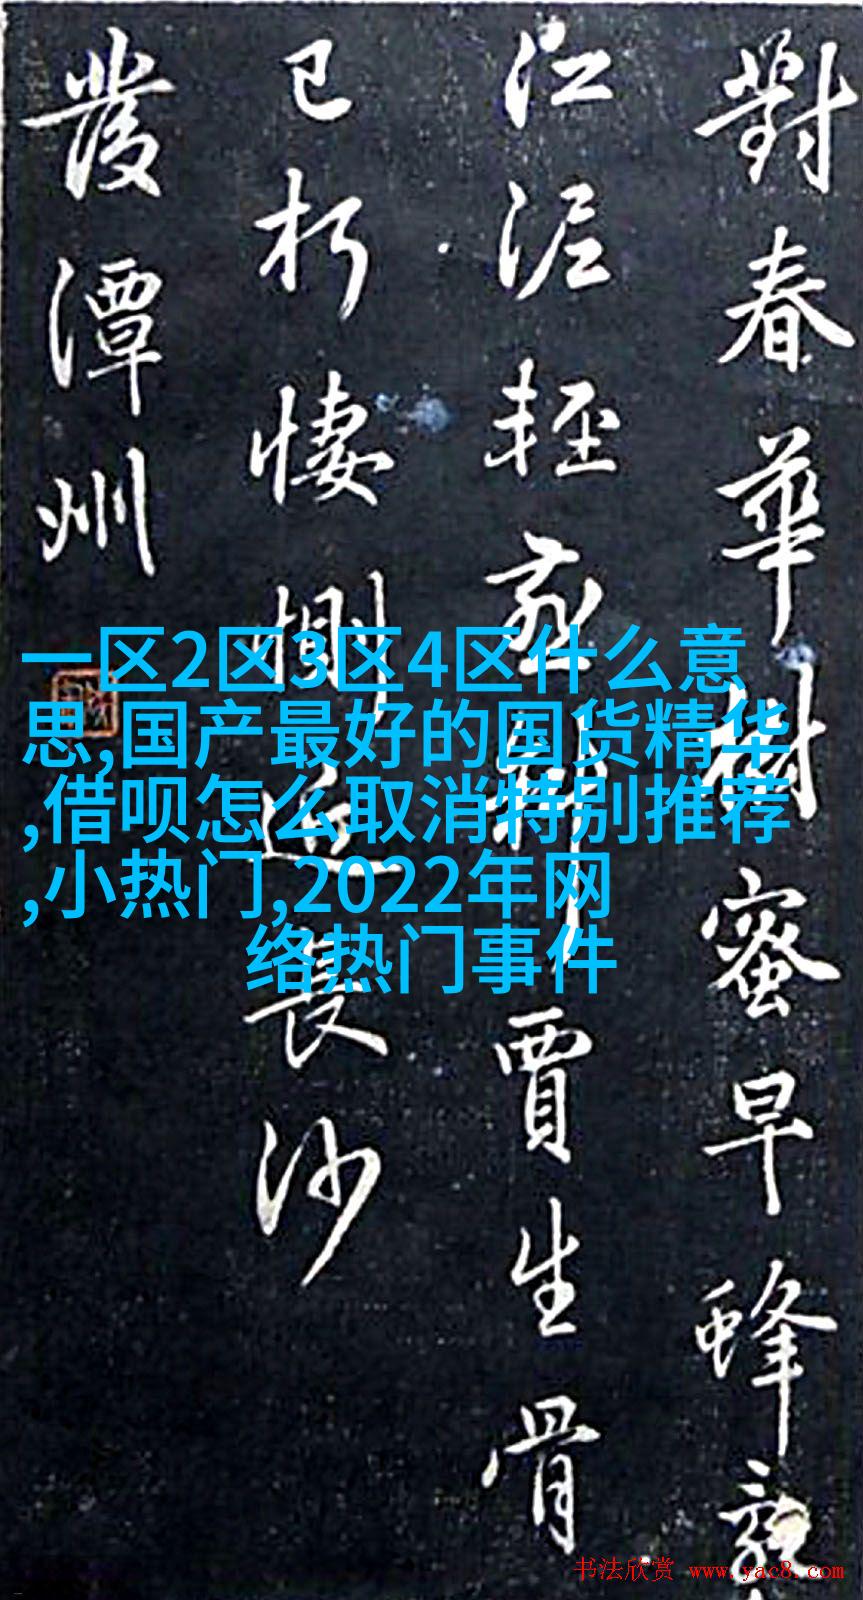 對春華樹蜜早蜂亂
江泥輕燕斜賈生骨
已朽悽惻近長沙
發潭州
一区2区3区4区什么意
思,国产最好的国货精华
,借呗怎么取消特别推荐
,小热门,2022年网
络热门事件
书法欣赏 www.yac8.com